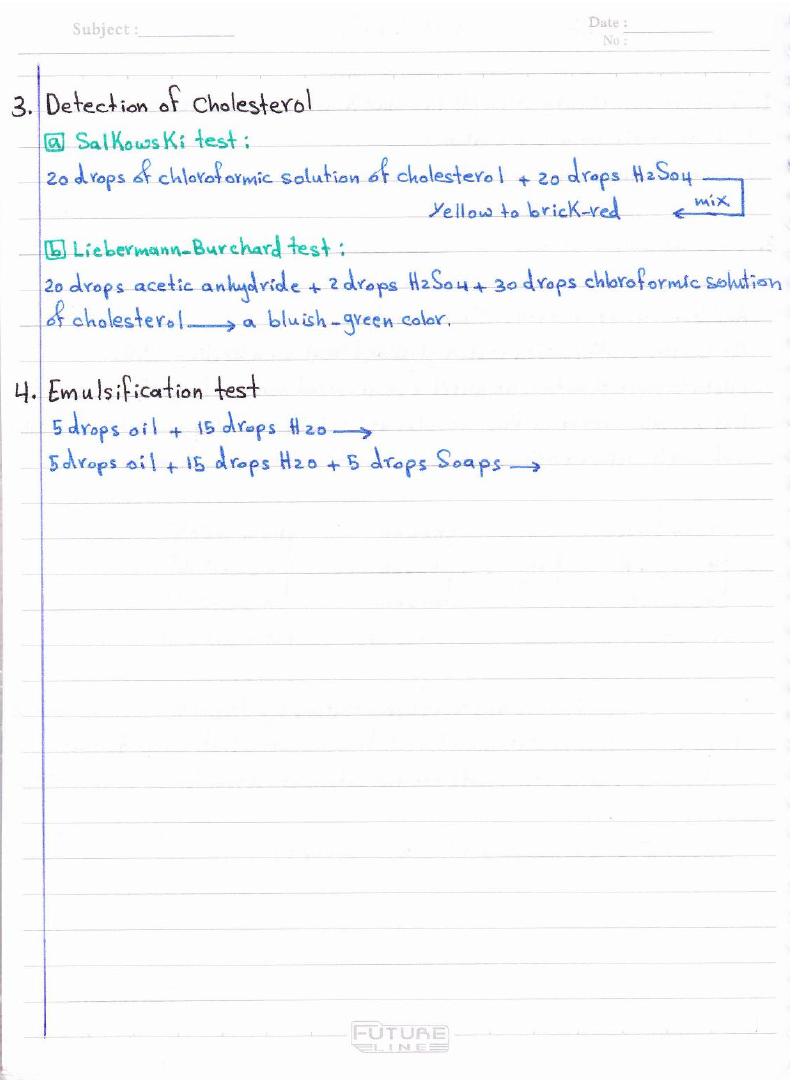 Subject :
Date :
No :
3. Detection of Cholesterol
a Salkowski test :
20 drops of chloroformic solution of cholesterol + 20 drops H2SO4
mix
Yellow to brick-red
b Liebermann-Burchard test :
20 drops acetic anhydride + 2 drops H2SO4 + 30 drops chloroformic solution
of cholesterol → a bluish-green color.
4. Emulsification test
5 drops oil + 15 drops H2O →
5 drops oil + 15 drops H2O + 5 drops Soaps →
FUTURE
LINE